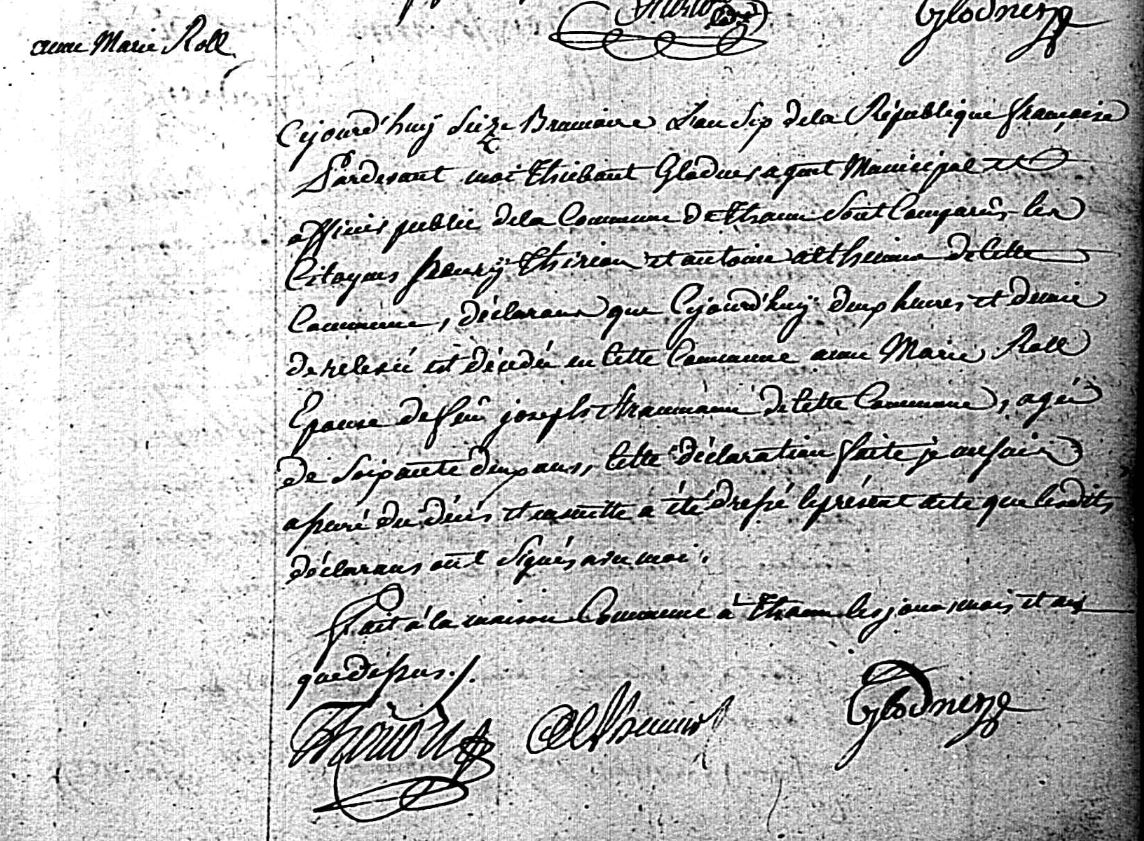 Glodnerze
anne Marie Roll
Cejourd'huÿ Seize Brumaire L'an Six dela République française
Pardevant moi Thiebaut Glodner agent Municipal et
officier public dela Commune de Thann Sont Comparûs les
Citoyens françÿ Thirion et antoine altheimer de Cette
Commune, déclarans que Cejourd'huÿ deux heures et demie
de relevée est décédée en Cette Commune anne Marie Roll
Epouse de feû joseph de Cette Commune, agée
de Soixante deux ans, Cette déclaration faite je me suis
assuré du décès et ensuitte a été dressé le présent acte que lesdits
déclarans ont Signés avec moi.
Fait à la maison Commune à Thann les jour, mois et an
que dessus./.
Thirion Glodnerze